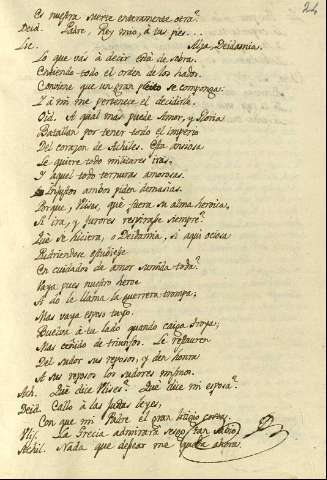 24
Es nuestra suerte enteramente otra?
Deid. Padre, Rey mio, à tus pies....
Lic. Alza, Deidamia.
Lo que vas à decir está de sobra.
Entiendo todo el orden de los hados.
Conviene que un gran pleito se componga.
I à mi me pertenece el decidirle.
Oíd. A qual mas puede Amor, y Gloria
Batallan por tener todo el imperio
Del corazon de Achiles. Esta ansiosa
Le quiere todo militares iras,
Y aquel todo ternuras amorosas.
Injustos ambos piden demasias.
Porque, Ulises, qué fuera su alma heroica,
Si ira, y furores respirase siempre?
Qué se hiciera, o Deidamia, si aqui ociosa
Pudriendose estubiese
En cuidados de amor sumida toda?
Vaya pues nuestro heroe
A do le llama la guerrera trompa;
Mas vaya esposo tuyo.
Buelva à tu lado quando caiga Troya;
Mas ceñido de triunfos. Le restauren
Del sudor sus reposos, y den honra
A sus reposos los sudores mismos.
Ach. Qué dice Ulises? Qué dice mi esposa?
Deid. Callo à las justas leyes,
Con que mi Padre el gran litigio corta.
Ulis. La Grecia admirará sesgo tan sabio.
Achil. Nada que desear me queda ahora.